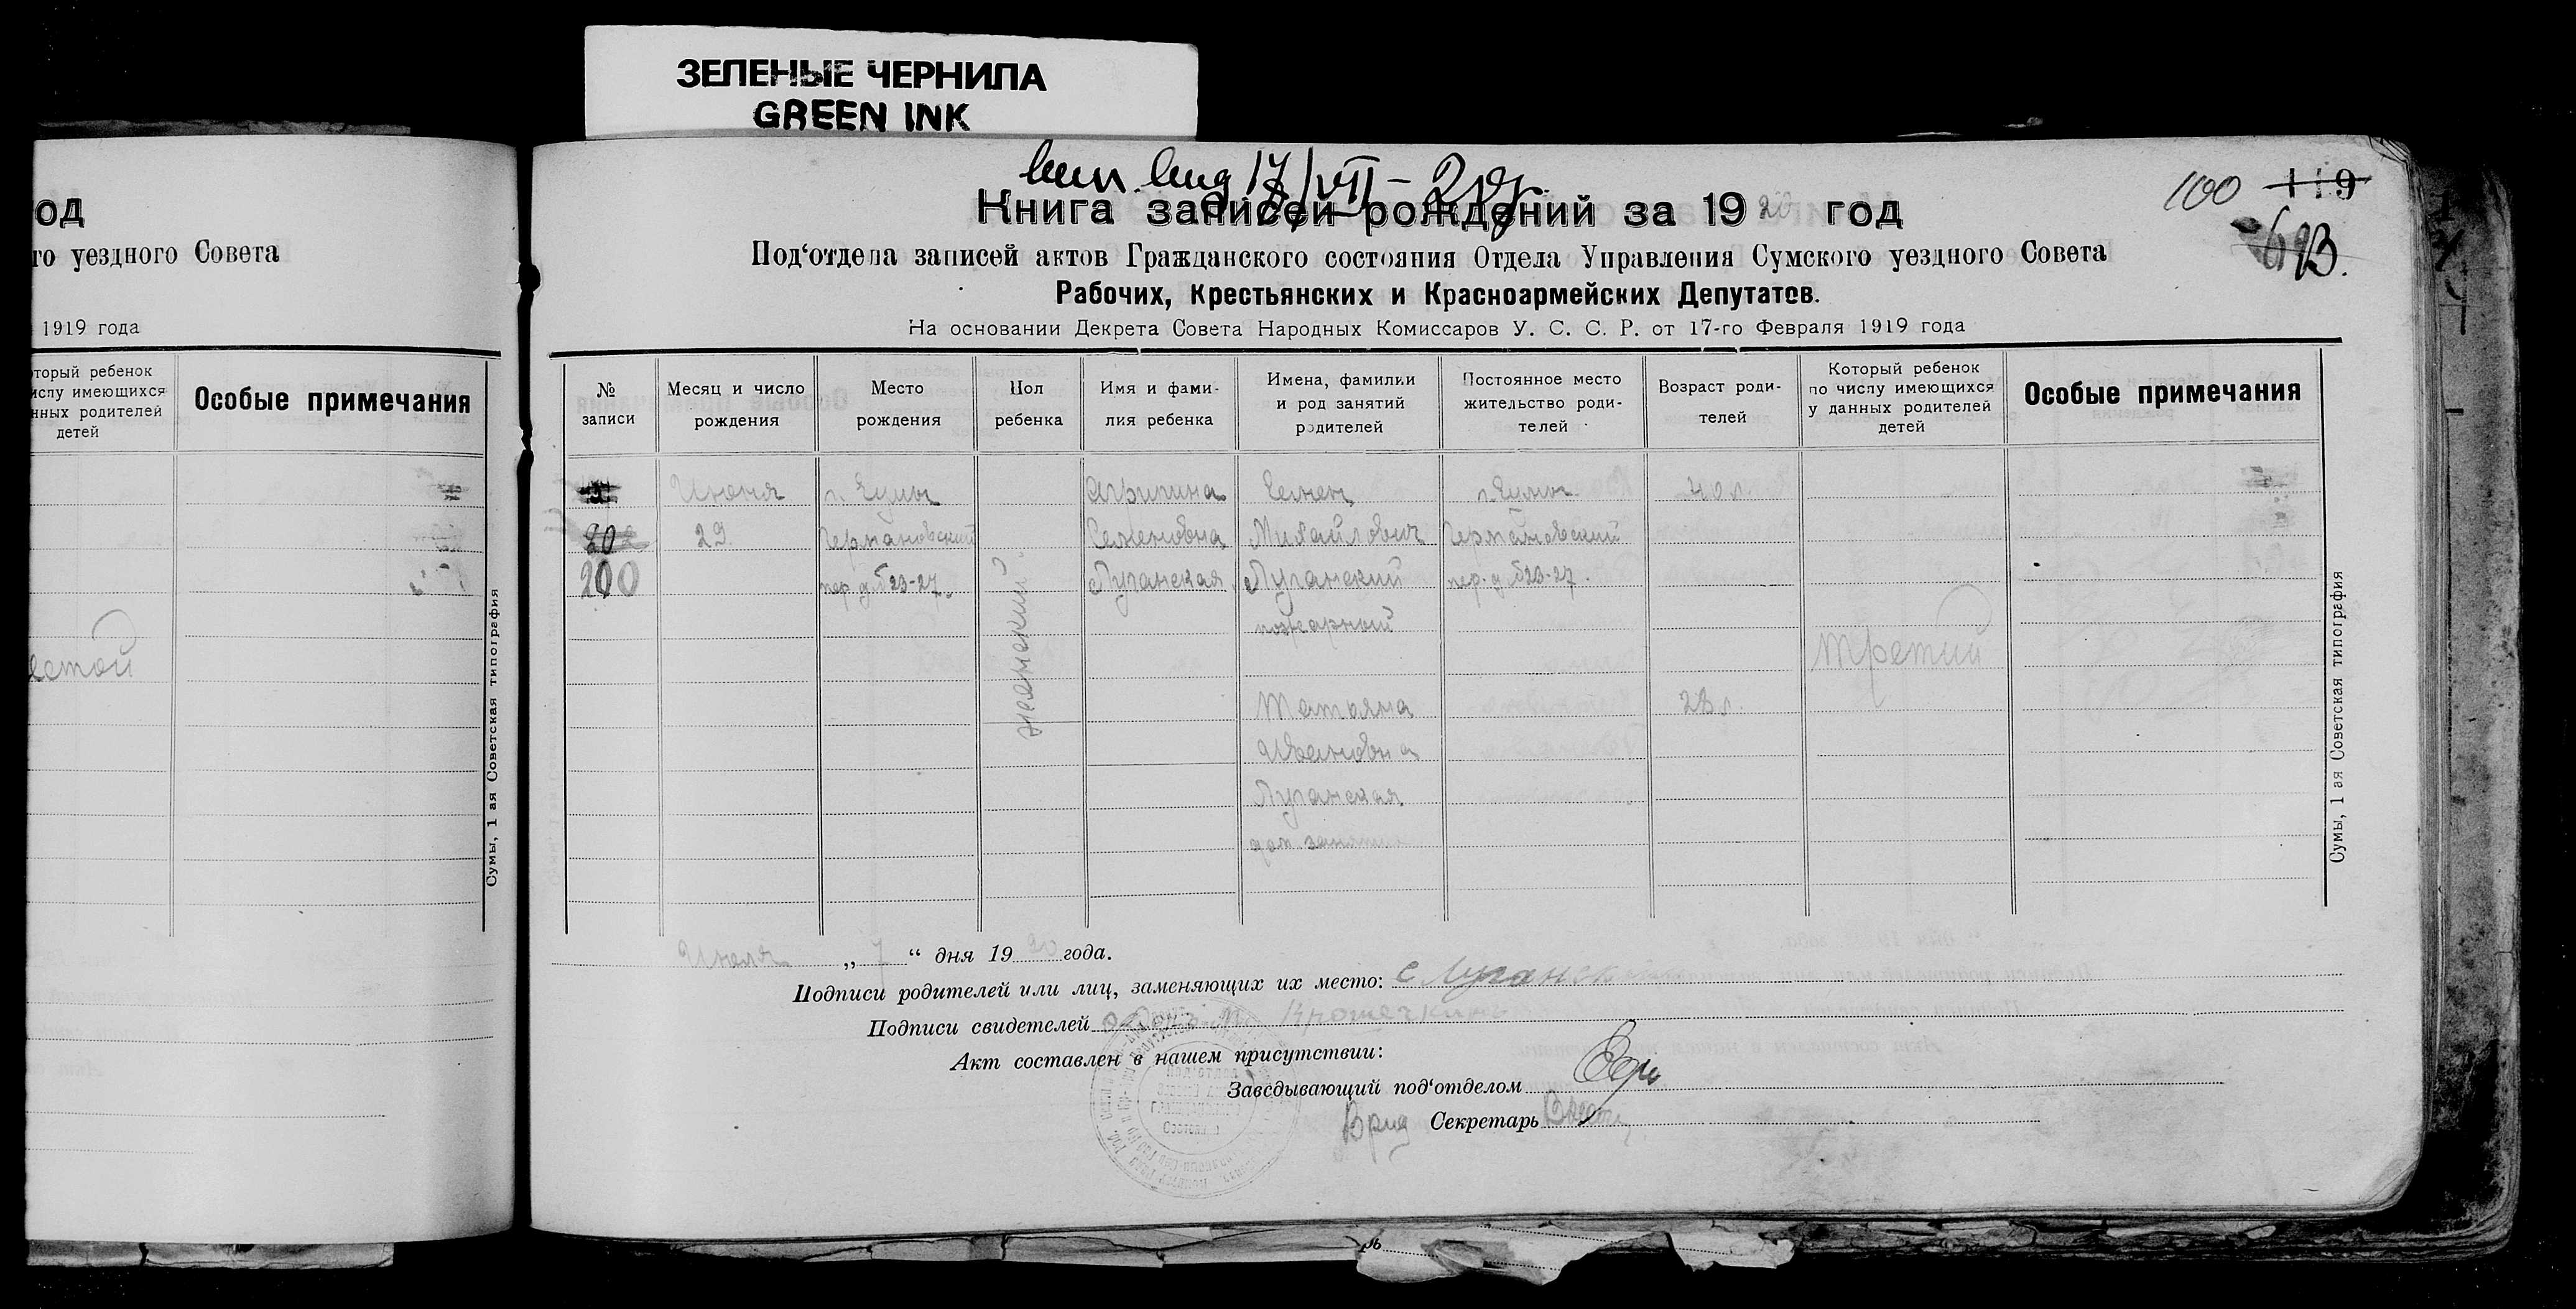 ЗЕЛЕНЫЕ ЧЕРНИЛА
GREEN INK
од
го уездного Совета
1919 года
оторый ребенок
ислу имеющихся
нных родителей
детей
Особые примечания
естой
Сумы, 1 ая Советская типография
17/VII-
100 119
Книга записей рождений за 1920 год
Под‘отдела записей актов Гражданского состояния Отдела Управления Сумского уездного Совета
Рабочих, Крестьянских и Красноармейских Депутатов.
На основании Декрета Совета Народных Комиссаров У. С. С. Р. от 17-го Февраля 1919 года
№
записи
Месяц и число
рождения
Место
рождения
Пол
ребенка
Имя и фами-
лия ребенка
Имена, фамилии
и род занятий
родителей
Постоянное место
жительство роди-
телей
Возраст роди-
телей
Который ребенок
по числу имеющихся
у данных родителей
детей
Особые примечания
202
200
Июня
29.
г. Сумы
Германовский
пер. д. №23-27.
женский
Агрипина
Семеновна
Луганская
Семен
Михайлович
Луганский
пожарный
Татьяна
Ивановна
Луганская
дом. занятие
г. Сумы
Германовский
пер. д. №23-27.
40 л.
28 л.
третий
Сумы, 1 ая Советская типография
Июля „ 7 “ дня 1920 года.
Подписи родителей или лиц, заменяющих их место: С Луганский
Подписи свидетелей
Акт составлен в нашем присутствии:
Заведывающий под‘отделом
Врид Секретарь